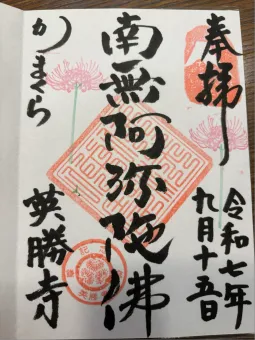 奉拝
令和七年
九月十五日
南無阿弥陀佛
かまくら
英勝寺